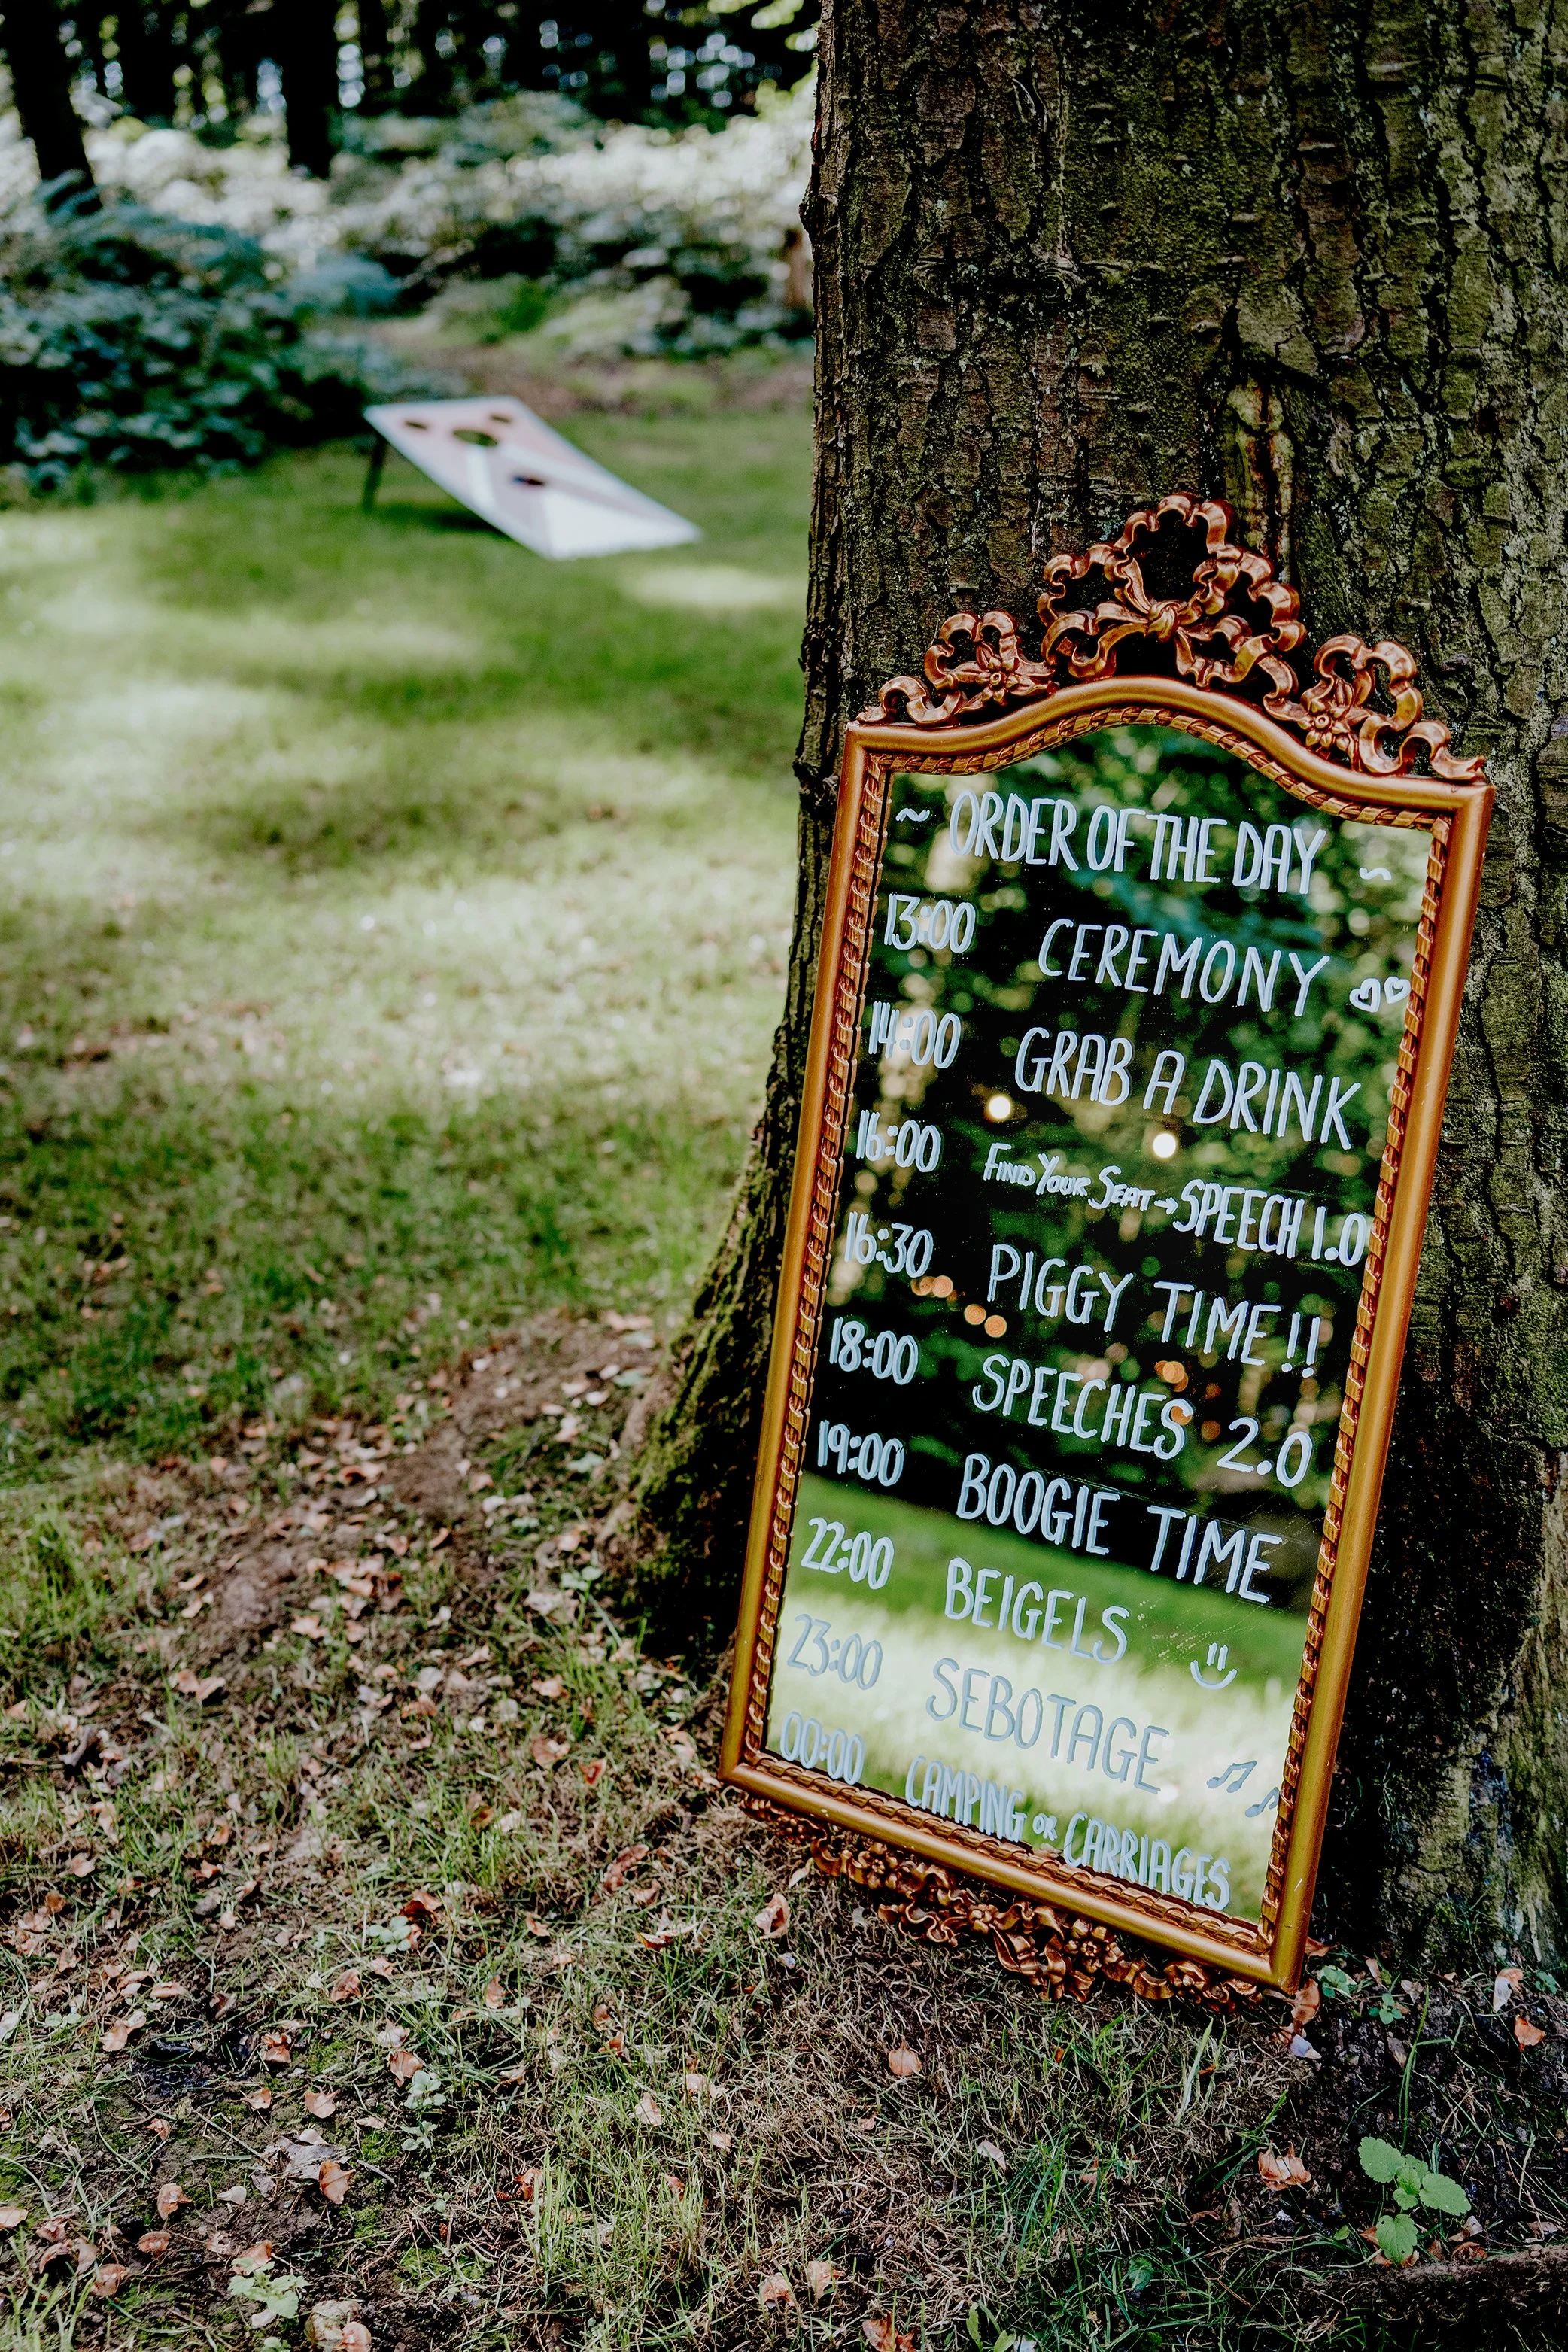 ~ ORDER OF THE DAY ~
13:00 CEREMONY
14:00 GRAB A DRINK
16:00 FIND YOUR SEAT → SPEECH 1.0
16:30 PIGGY TIME!!
18:00 SPEECHES 2.0
19:00 BOOGIE TIME
22:00 BEIGELS
23:00 SEBOTAGE
00:00 CAMPING OR CARRIAGES